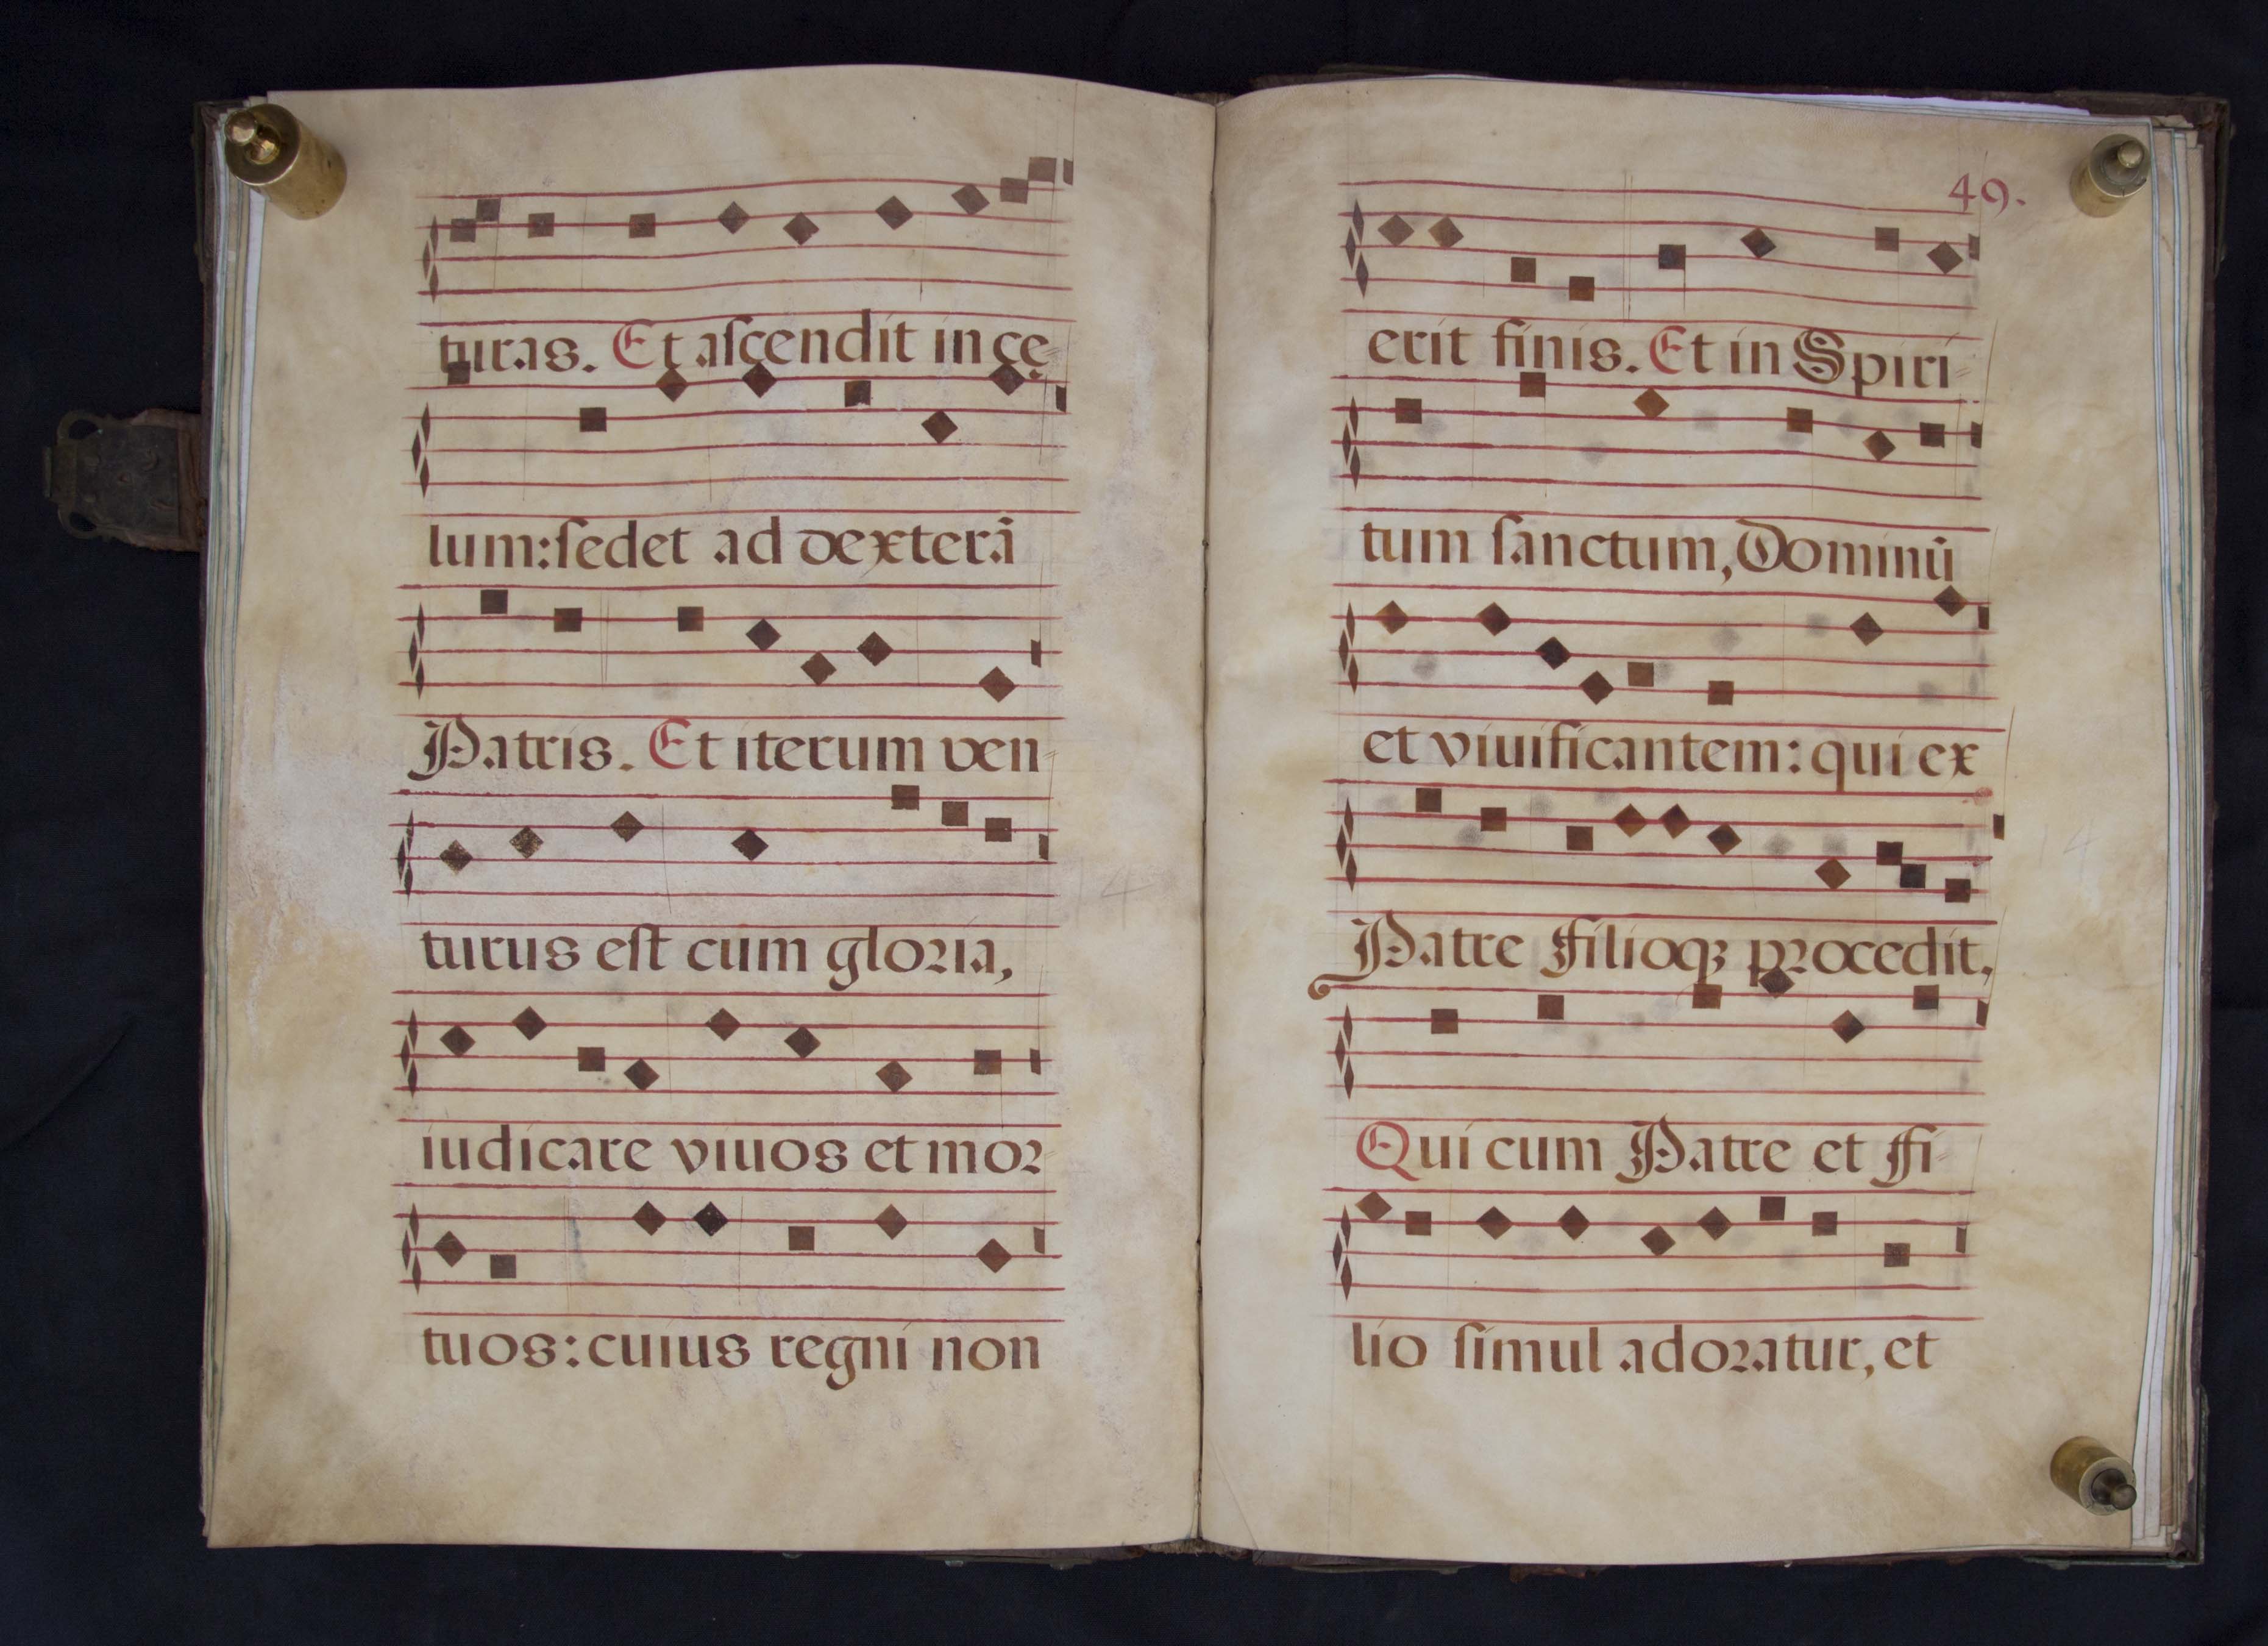 turas. Et aſcendit in cę
lum: ſedet ad dexterā
Patris. Et iterum ven-
turus eſt cum gloria,
iudicare viuos et mor-
tuos: cuius regni non
49.
erit finis. Et in Spiri-
tum ſanctum, Dominū
et viuificantem: qui ex
Patre Filioqꝫ procedit,
Qui cum Patre et Fi-
lio ſimul adoratur, et
14
14